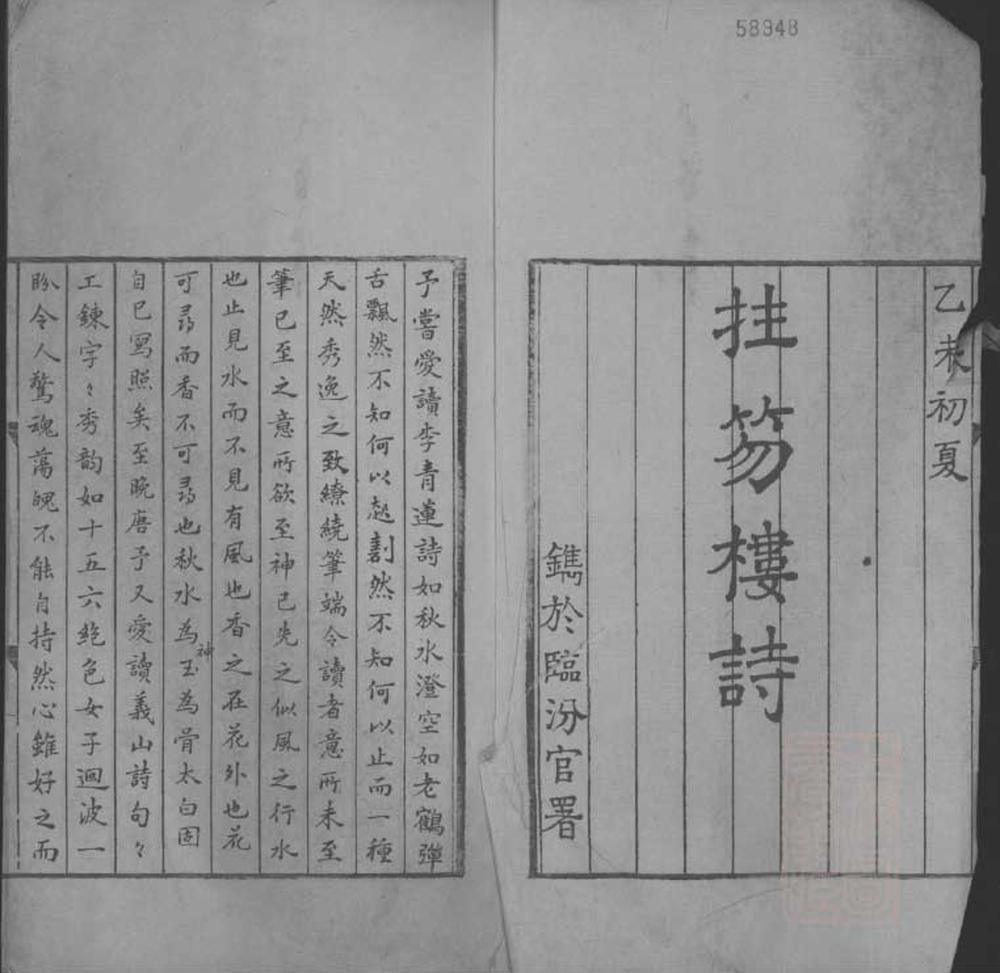 58948
乙未初夏
拄笏樓詩
鐫於臨汾官署
予嘗愛讀李青蓮詩如秋水澄空如老鶴彈
舌飄然不知何以起割然不知何以止而一種
天然秀逸之致繚繞筆端令讀者意所未至
筆已至之意所欲至神已先之似風之行水
也止見水而不見有風也香之在花外也花
可尋而香不可尋也秋水為神玉為骨太白固
自已寫照矣至晚唐予又愛讀義山詩句々
工鍊字々秀韵如十五六絕色女子迴波一
盼令人驚魂蕩魄不能自持然心雖好之而